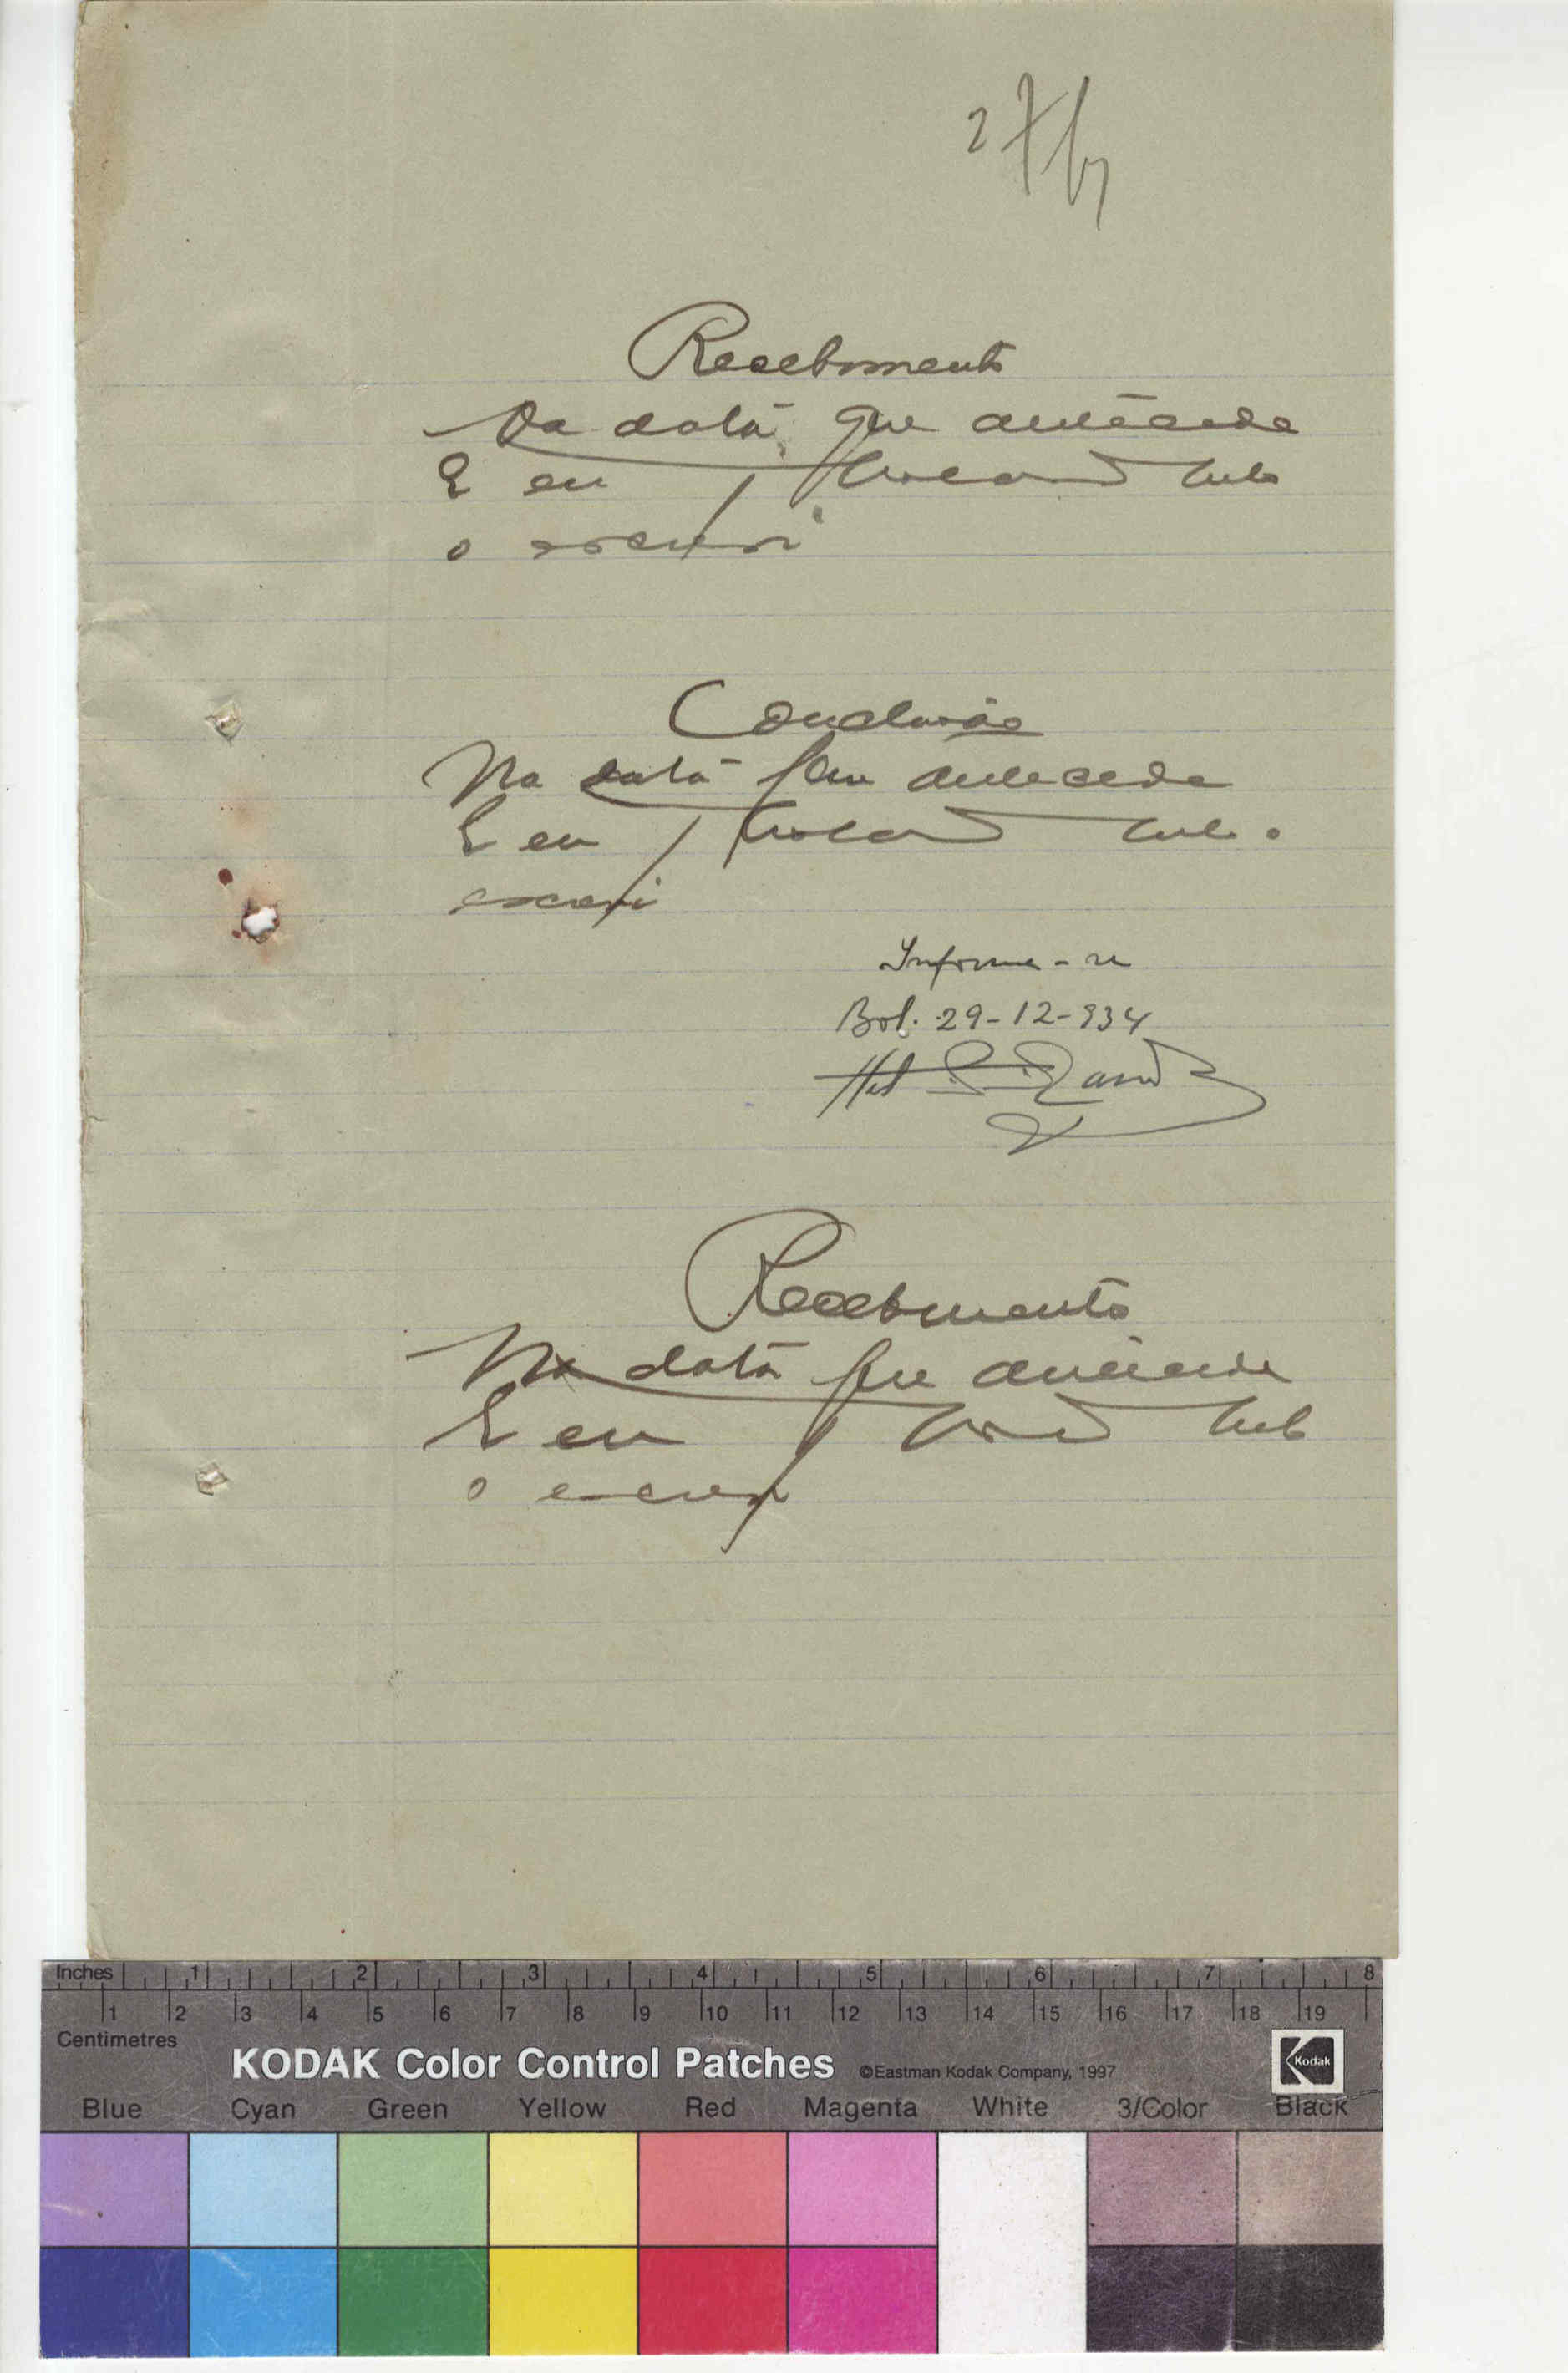 27
Recebimento
Na data que antecede
E eu
o escrevi
Conclusão
Na data que antecede
E eu
escrevi
Informe-se
Bol. 29-12-934
Recebimento
Na data que antecede
E eu
o escrevi
Inches 1 2 3 4 5 6 7 8
1 2 3 4 5 6 7 8 9 10 11 12 13 14 15 16 17 18 19
Centimetres
KODAK Color Control Patches ©Eastman Kodak Company, 1997 Kodak
Blue Cyan Green Yellow Red Magenta White 3/Color Black